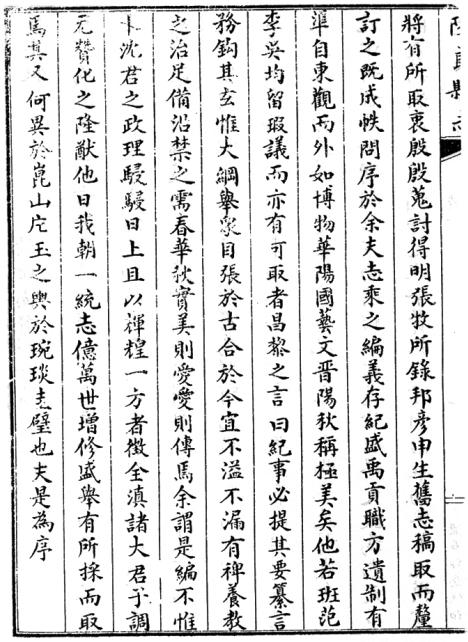 將有所取衷殷殷蒐討得明張牧所錄邦彥申生舊志稿取而釐
訂之既成帙問序於余夫志乘之編義存紀盛禹貢職方遺制有
準自東觀而外如博物華陽國藝文晉陽秋稱極美矣他若班范
李吳均留瑕議而亦有可取者昌黎之言曰紀事必提其要纂言
務鈎其玄惟大綱舉衆目張於古合於今宜不溢不漏有裨養教
之治足備沿禁之需春華秋實美則愛愛則傳焉余謂是編不惟
沈君之政理駸駸日上且以禆糧一方者徵全滇諸大君子調
元贊化之隆猷他日我朝一統志億萬世增修盛舉有所採而取
焉其又何異於崑山片玉之輿於琬琰圭璧也夫是為序